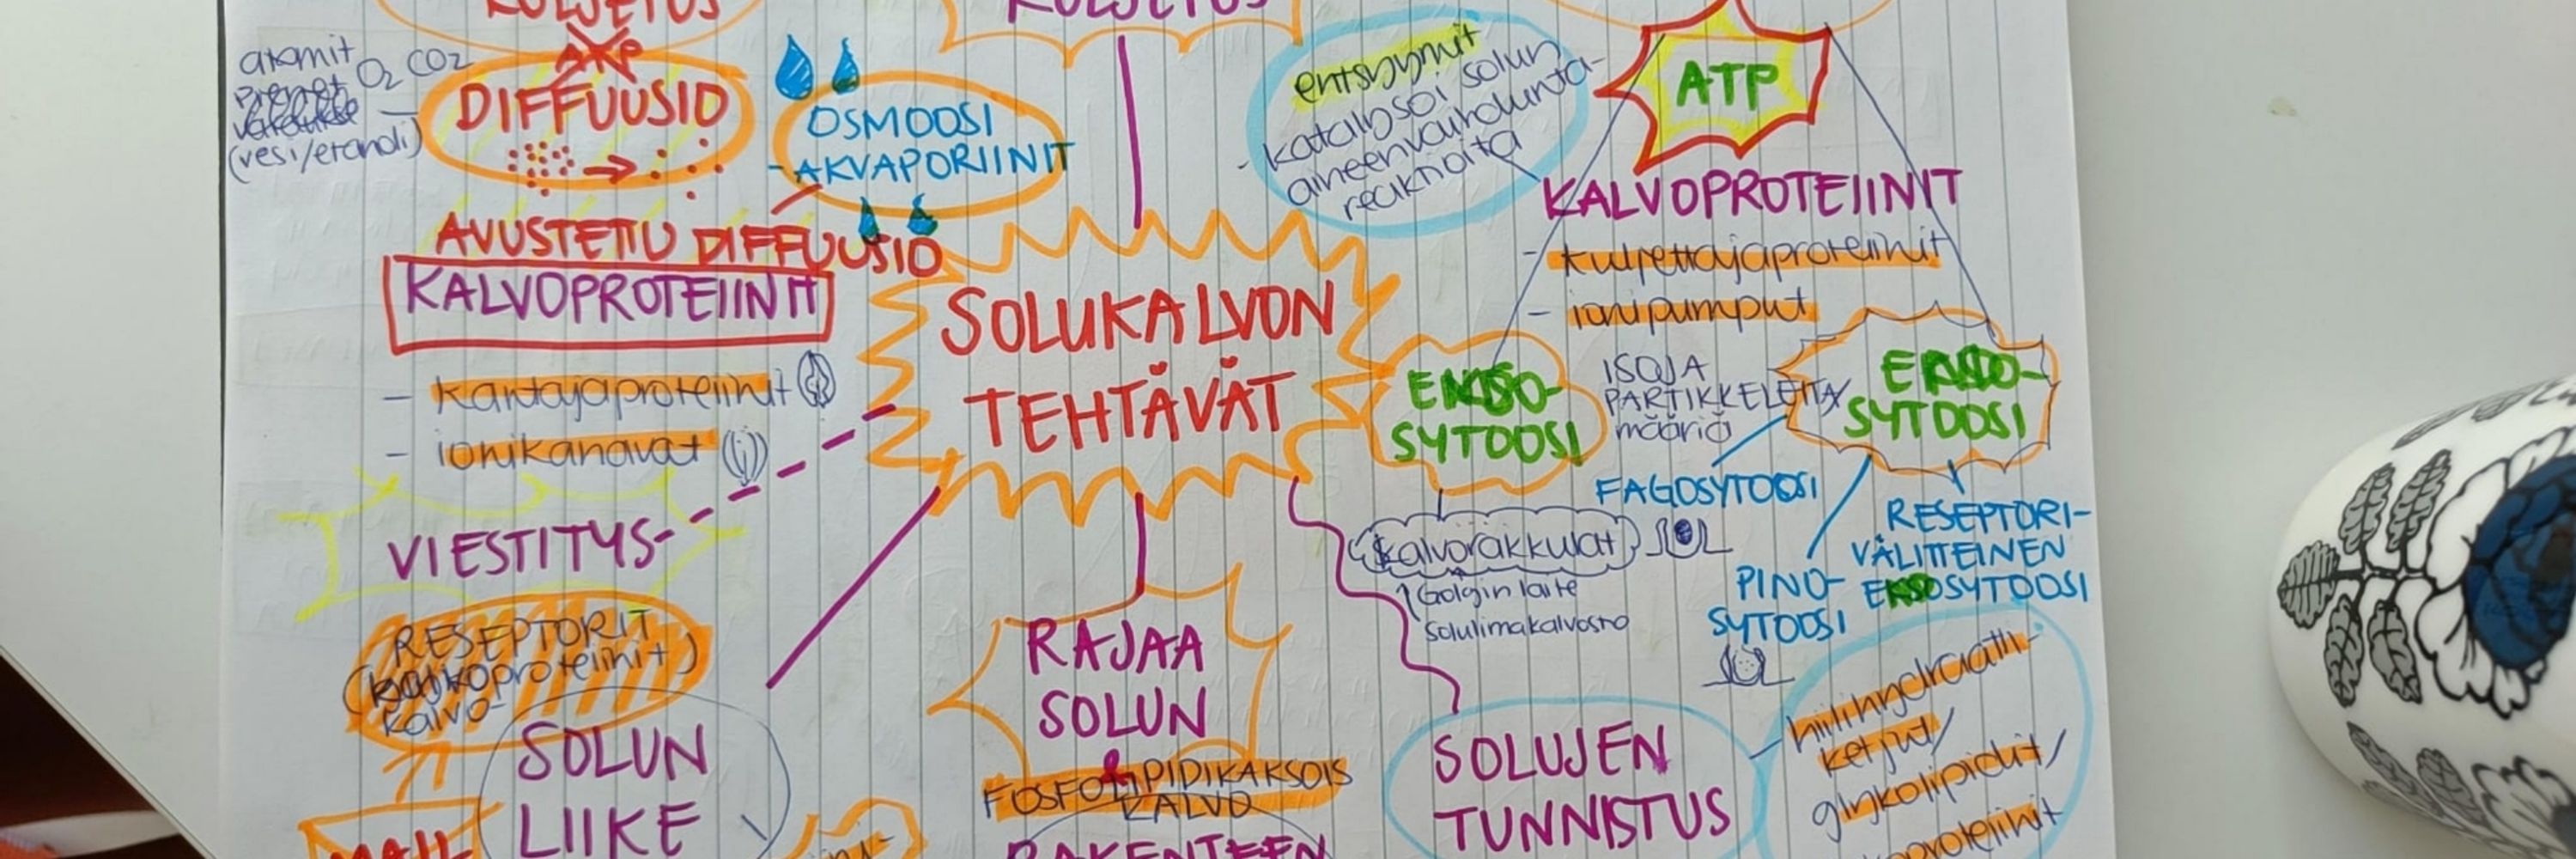 KULJETUS
KULJETUS
atomit
pienet O2 CO2
(vesi/etanoli)
DIFFUUSIO
OSMOOSI
-AKVAPORIINIT
AVUSTETTU DIFFUUSIO
KALVOPROTEIINIT
- kantajaproteiinit
- ionikanavat
VIESTITYS
RESEPTORIT
kalvo-
SOLUN
LIIKE
MAIL
SOLUKALVON
TEHTÄVÄT
RAJAA
SOLUN
FOSFOLIPIDIKAKSOIS
KALVO
RAKENTEEN
entsyymit
- katalysoi solun
aineenvaihdunta-
reaktioita
ATP
KALVOPROTEIINIT
- kuljettajaproteiinit
- ionipumput
EKSO-
SYTOOSI
ISOJA
PARTIKKELEITA/
määriä
ENDO-
SYTOOSI
FAGOSYTOOSI
kalvorakkulat
Golgin laite
solulimakalvosto
PINO-
SYTOOSI
RESEPTORI-
VÄLITTEINEN
EKSOSYTOOSI
SOLUJEN
TUNNISTUS
hiilihydraatti-
ketjut/
glykolipidit/
proteiinit